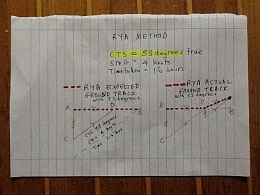 RYA METHOD
CTS = 53 degrees true
SMG = 4 knots
Time taken = 1½ hours
RYA EXPECTED
GROUND TRACK
with 53 degrees
RYA ACTUAL
GROUND TRACK
with 53 degrees
A
D
B
C
CTS 53 degrees
SMG 4 knots
Time 1½ hours
A
B
C